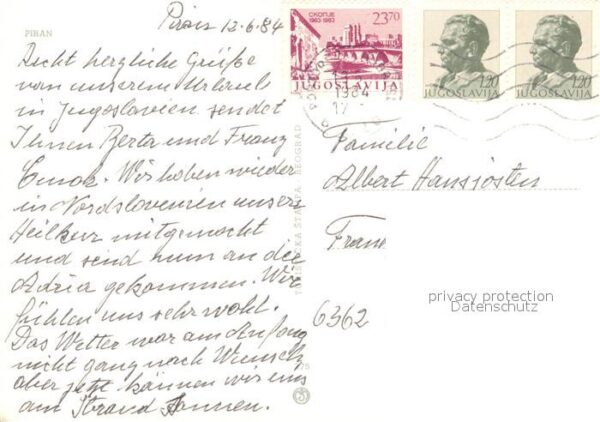 Piran 12.6.84
PIRAN
Recht herzliche Grüße
von unserem Urlaub
in Jugoslavien sendet
Ihnen Berta und Franz
Wir haben wieder
in Nordslovenien unsere
Heilkur mitgemacht
und sind nun an die
Adria gekommen. Wir
fühlen uns sehr wohl.
Das Wetter war am Anfang
nicht ganz nach Wunsch
aber jetzt können wir uns
am Strand sonnen.
СКОПЈЕ
1963-1983
23.70
JUGOSLAVIJA
1.20
JUGOSLAVIJA
1.20
JUGOSLAVIJA
1984
17
BEOGRAD
Familie
Albert Hansjosten
6362
privacy protection
Datenschutz